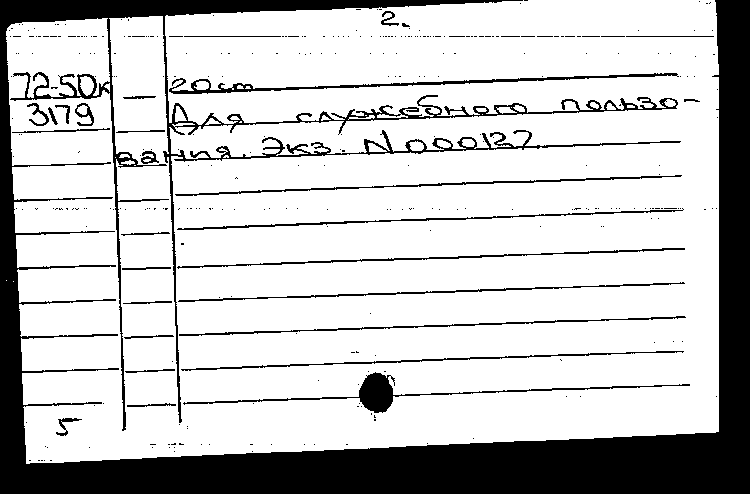 2.
72-50к 20cm
3179 Для служебного пользо-
вания. Экз. N000127
5